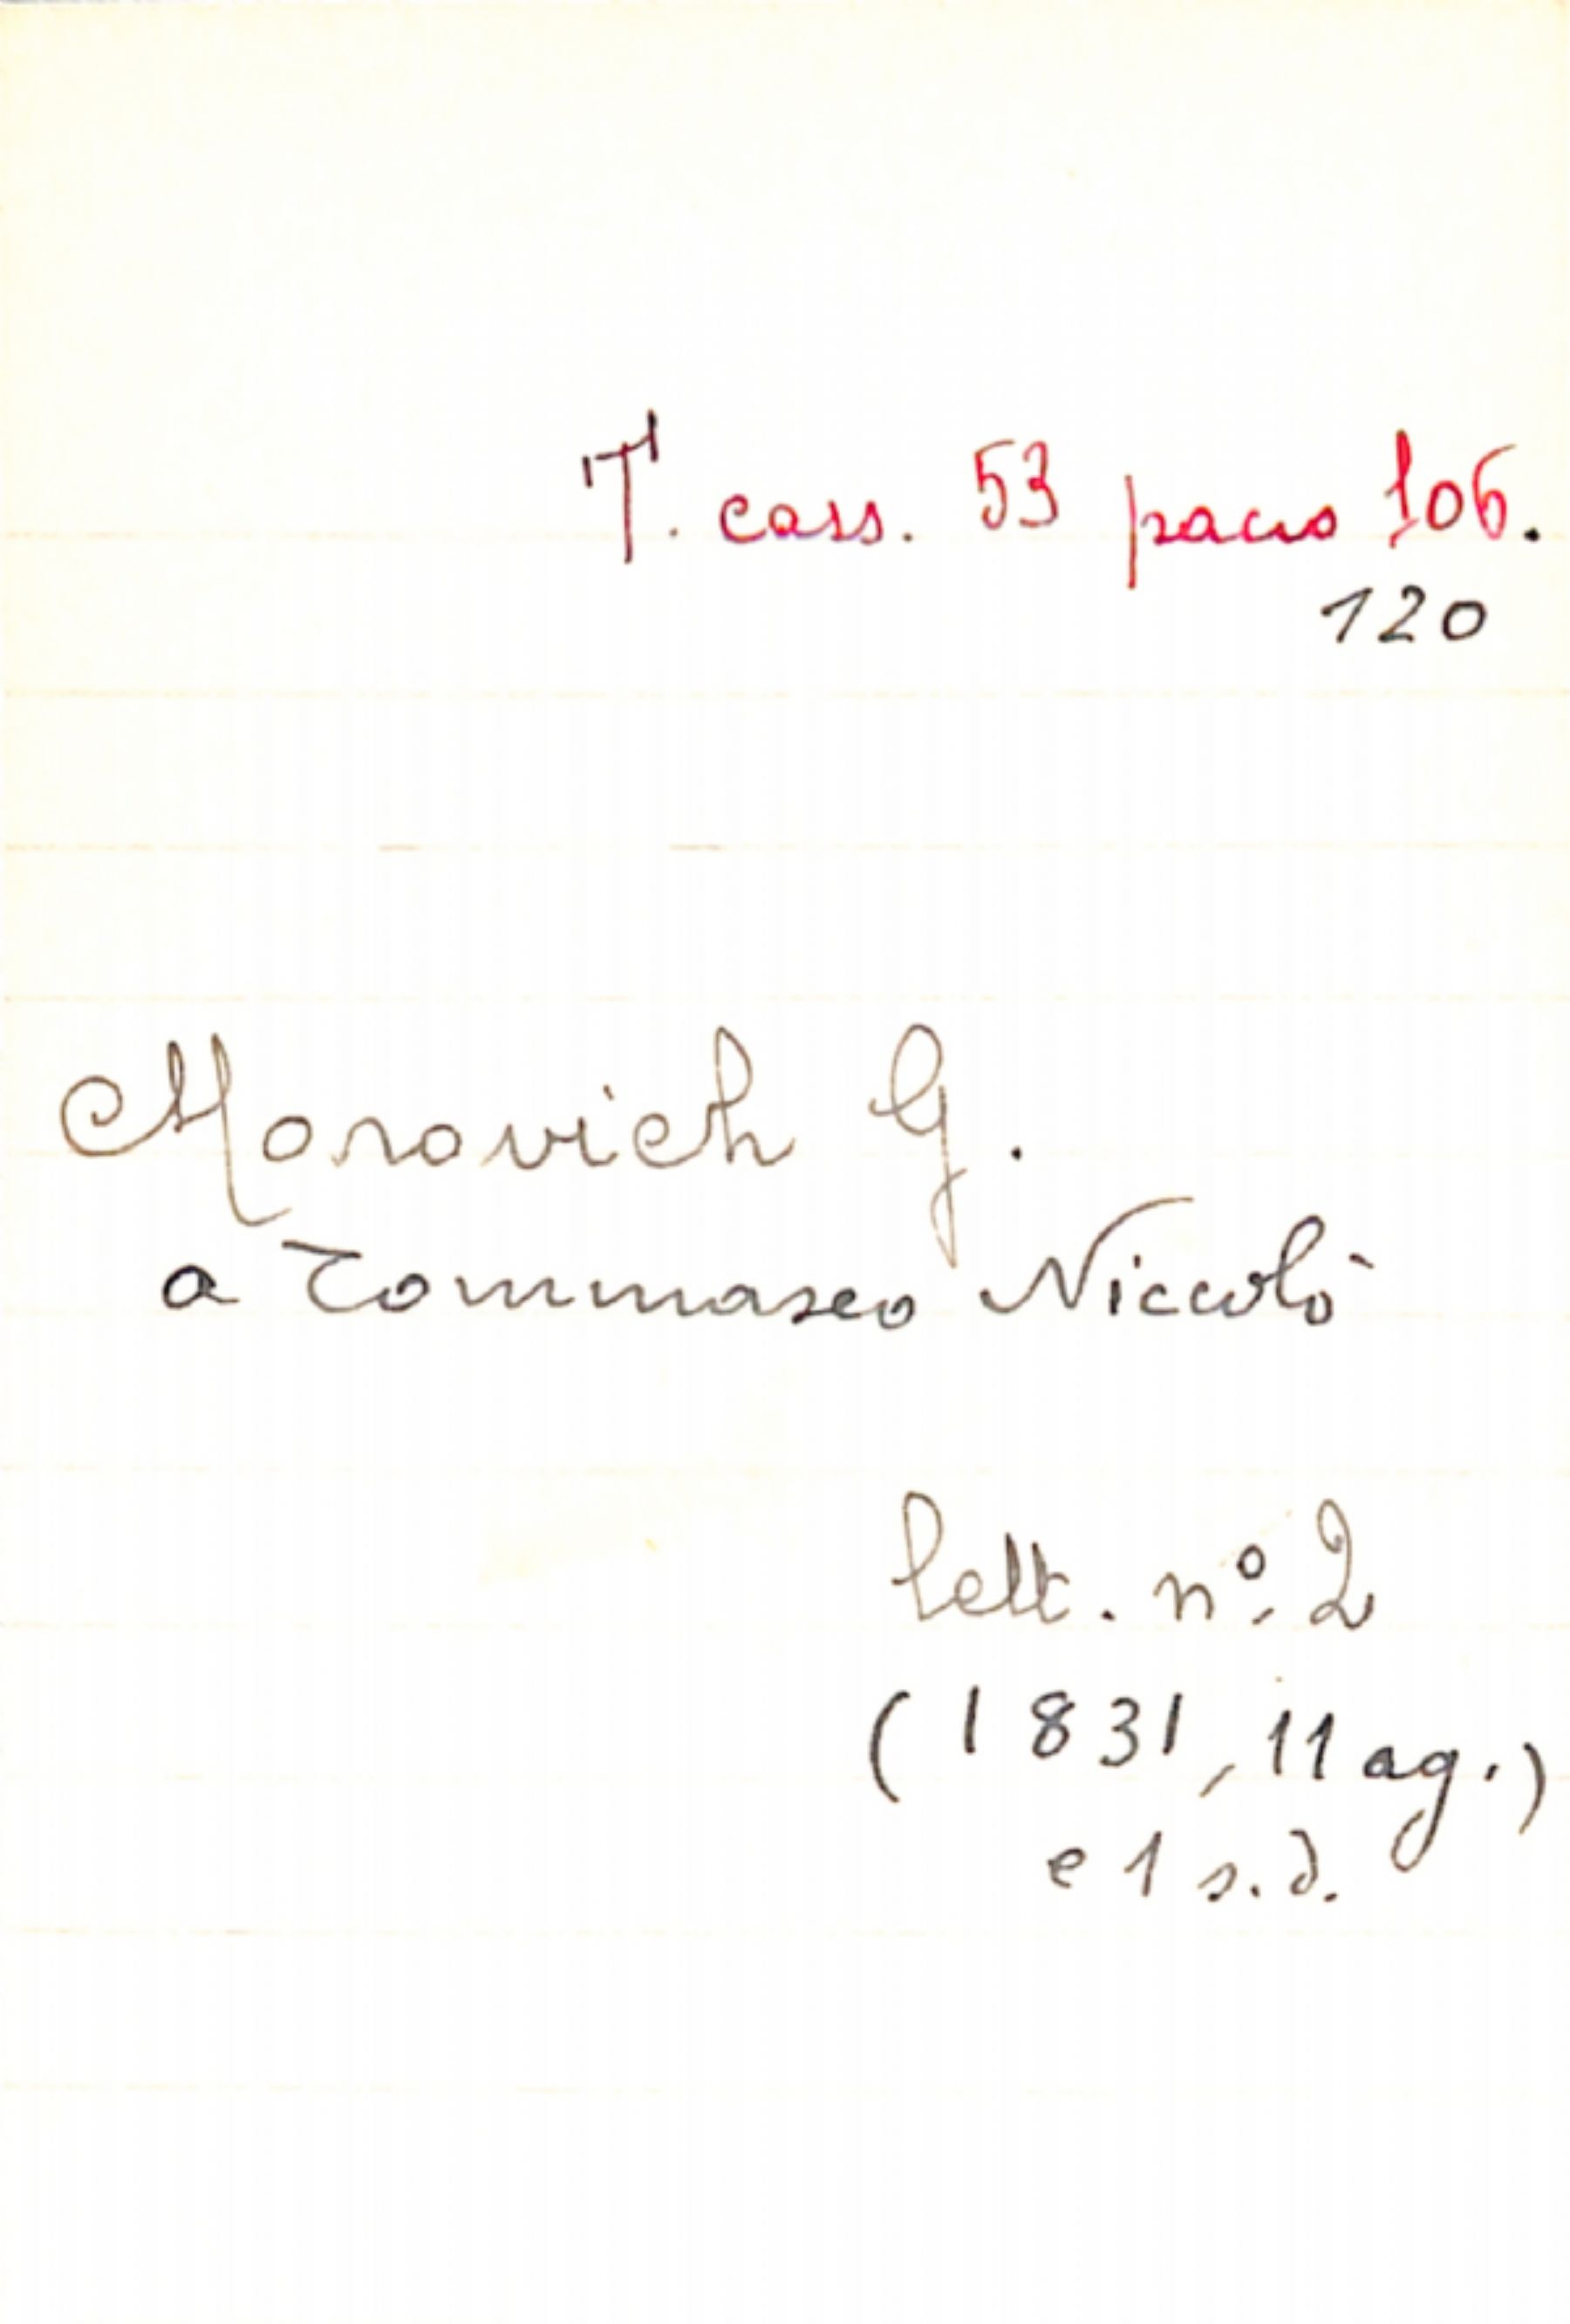 T. cass. 53 pacco 106.
120
Morovich G.
a Tommaseo Niccolò
lett. nº. 2
(1831, 11 ag.)
e 1 s.d.